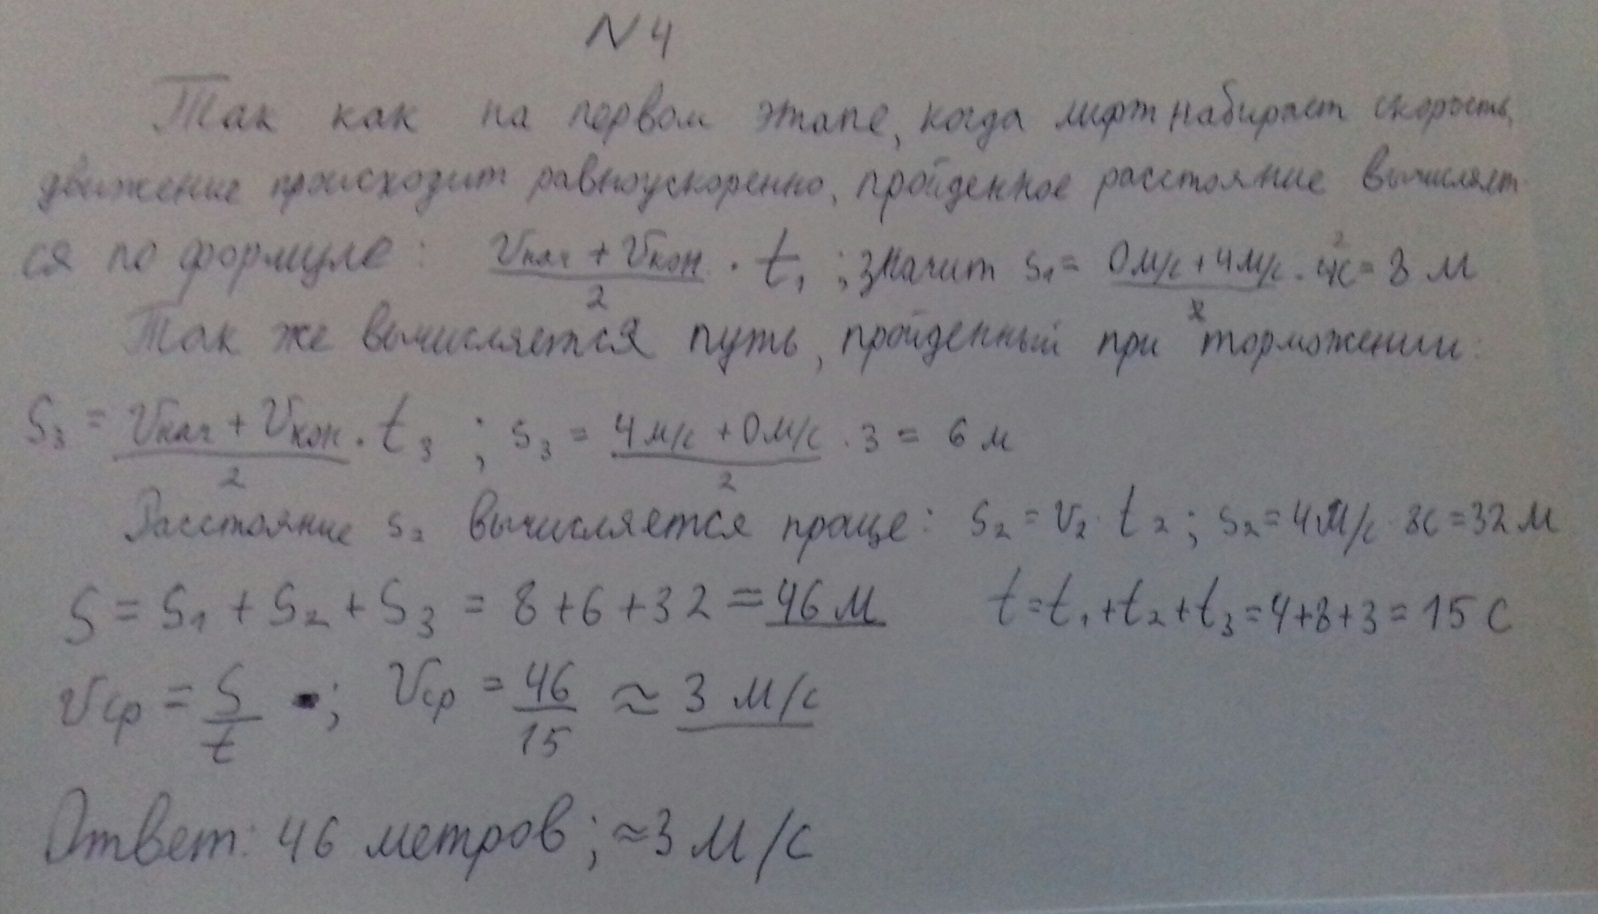 N 4
Так как на первом этапе, когда лифт набирает скорость,
движение происходит равноускоренно, пройденное расстояние вычисляет-
ся по формуле: (Vнач + Vкон)/2 · t₁ ; значит s₁ = (0м/с + 4м/с)/2 · 4с = 8 м
Так же вычисляется путь, пройденный при торможении:
S₃ = (Vнач + Vкон)/2 · t₃ ; s₃ = (4м/с + 0м/с)/2 · 3 = 6 м
Расстояние s₂ вычисляется праще: s₂ = v₂ · t₂ ; s₂ = 4м/с · 8с = 32 м
S = S₁ + S₂ + S₃ = 8 + 6 + 32 = 46 м t = t₁ + t₂ + t₃ = 4+8+3 = 15 с
Vср = S/t ; Vср = 46/15 ≈ 3 м/с
Ответ: 46 метров; ≈3 м/с